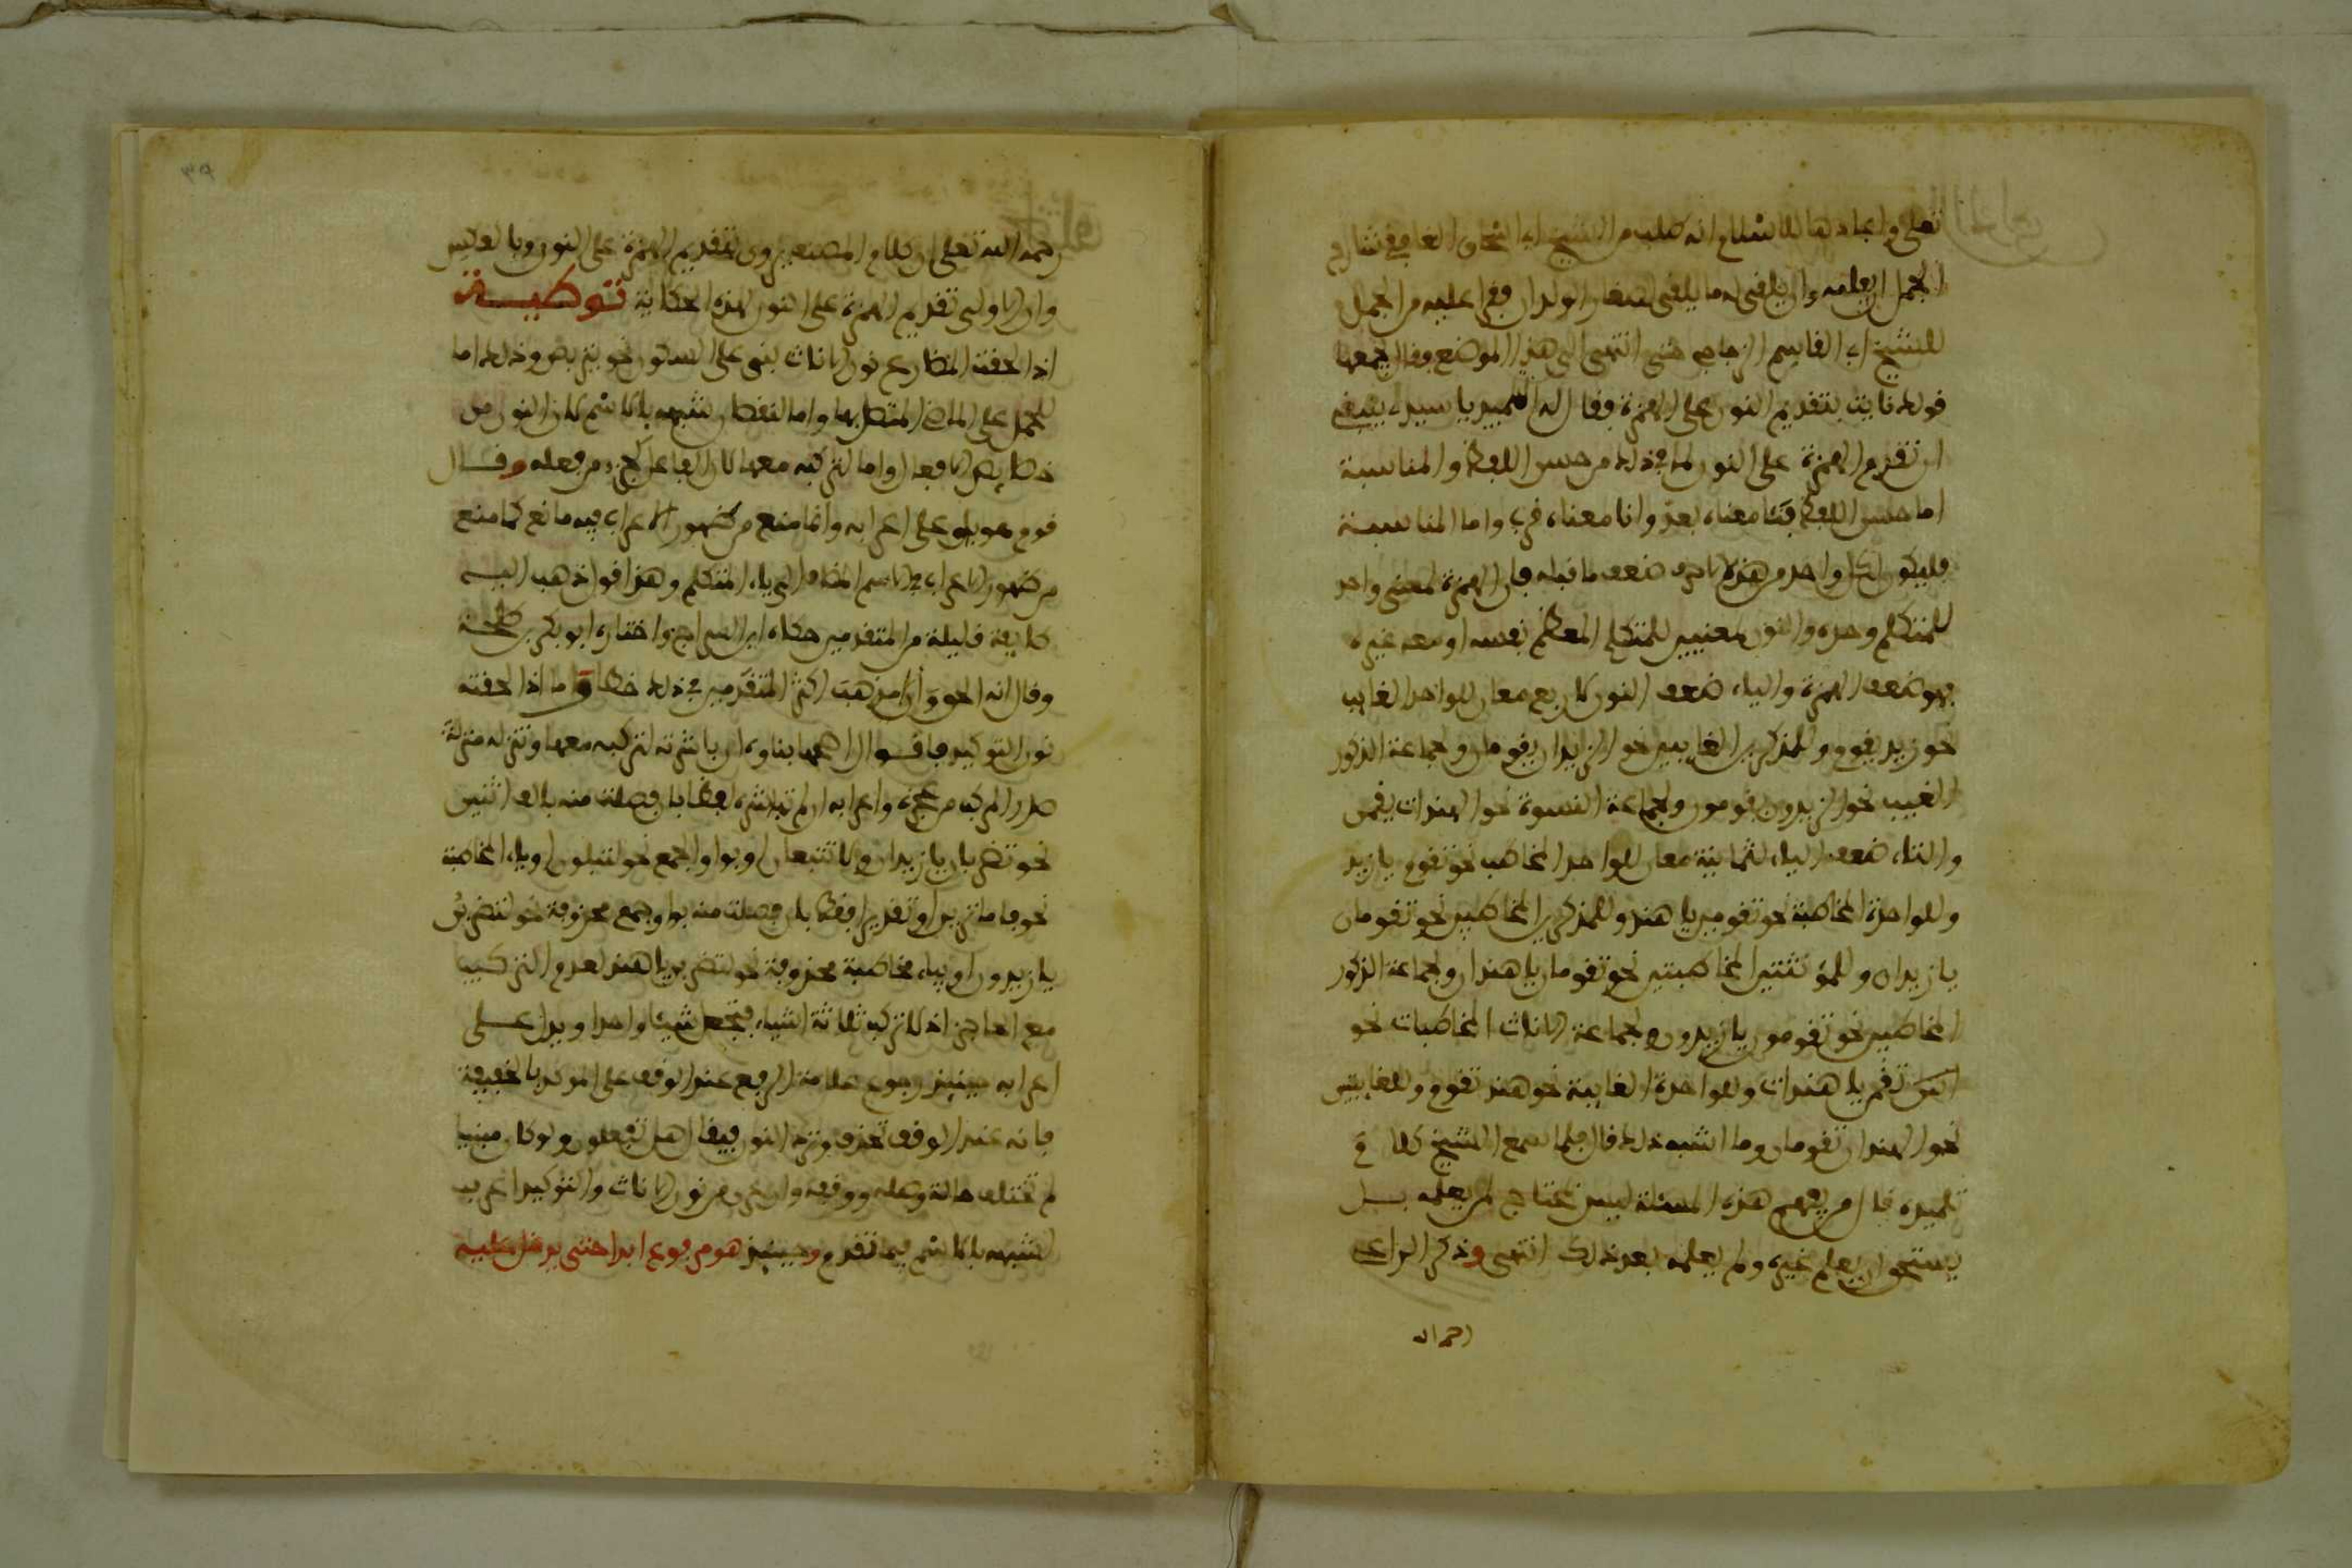 تعلى واعادها للاسلام انه طلب من الشيخ ابي اسحاق الغافقي شارح
الجمل ان يعلمه وان يلقي له ما يلقي لصغار الولدان فقرا عليه من الجمل
للشيخ ابي القاسم الزجاجي حتى انتهى الى هذا الموضع وقال يجمعها
قولك نايت بتقديم النون على الهمزة وقال له التلميذ يا سيدي ينبغي
ان تقدم الهمزة على النون لما في ذلك من حسن اللفظ والمناسبة
اما حسن اللفظ فنئا معناه بعد وانا معناه قرب واما المناسبة
فليكون كل واحد من هذه الاحرف ضعف ما قبله فان الهمزة لمعنى واحد
للمتكلم وحده والنون لمعنيين للمتكلم المعظم نفسه او معه غيره
فهو ضعف الهمزة والياء ضعف النون لاربع معان للواحد الغايب
نحو زيد يقوم وللمذكرين الغايبين نحو الزيدان يقومان ولجماعة الذكور
الغيب نحو الزيدون يقومون ولجماعة النسوة نحو الهندات يقمن
والتاء ضعف الياء لثمانية معان للواحد المخاطب نحو تقوم يا زيد
وللواحدة المخاطبة نحو تقومين يا هند وللمذكرين المخاطبين نحو تقومان
يا زيدان وللمؤنثتين المخاطبتين نحو تقومان يا هندان ولجماعة الذكور
المخاطبين نحو تقومون يا زيدون ولجماعة الاناث المخاطبات نحو
انتن تقمن يا هندات وللواحدة الغايبة نحو هند تقوم وللغايبتين
نحو الهندان تقومان وما اشبه ذلك قال فلما سمع الشيخ كلام
تلميذه قال من يفهم هذه المسئلة ليس يحتاج لمن يعلمه بل
يستحق ان يعلم غيره ولم يعلمه بعد ذلك انتهى وذكر الراعي
رحمه الله
رحمه الله تعلى ان كلام المصنف يروى بتقديم الهمزة على النون وبالعكس
وان الاولى تقديم الهمزة على النون لهذه الحكاية توطيـة
اذا لحقت المضارع نون الاناث بني على السكون نحو يتربصن وذلك اما
للحمل على الماضي المتصل بها واما لنقصان شبهه بالاسم لان النون من
خصايص الافعال واما لتركبه معها لان الفاعل كجزء من فعله وقـال
قوم هو باق على اعرابه وانما منع من ظهور الاعراب فيه مانع كما منع
من ظهور الاعراب في الاسم المضاف الى ياء المتكلم وهذا قول ذهب اليـه
طايفة قليلة من المتقدمين حكاه ابن السراج واختاره ابو بكر بن طلحـة
وقال انه الحق وان مذهب اكثر المتقدمين في ذلك خطا واما اذا لحقته
نون التوكيد فاقـوال اصحها بناوه ان باشرته لتركبه معها وتنزله منزلة
صدر المركب من عجزه واعرابه ان لم تباشره لفظا بان فصلت منه بالف اثنين
نحو تضربان يا زيدان ولا تتبعان او بواو الجمع نحو لتبلون او ياء المخاطبة
نحو فاما ترين او تقديرا فقط بان فصلت منه بواو جمع محذوفة نحو لتضربن
يا زيدون او بياء مخاطبة محذوفة نحو لتضربن يا هند لعدم التركيب
مع الحاجز اذ لا تركب ثلاثة اشياء فتجعل شيئا واحدا ويدل عـلى
اعرابه حينيذ رجوع علامة الرفع عند الوقف على الموكد بالخفيفة
فانه عند الوقف تحذف وترد النون فيقال هل تفعلون ولو كان مبنيا
لم تختلف حالة وصله ووقفه وان عري من نون الاناث والتوكيد اعرب
لشبهه بالاسم فيما تقدم وحينيذ هو مرفوع ابدا حتى يدخل عليـه